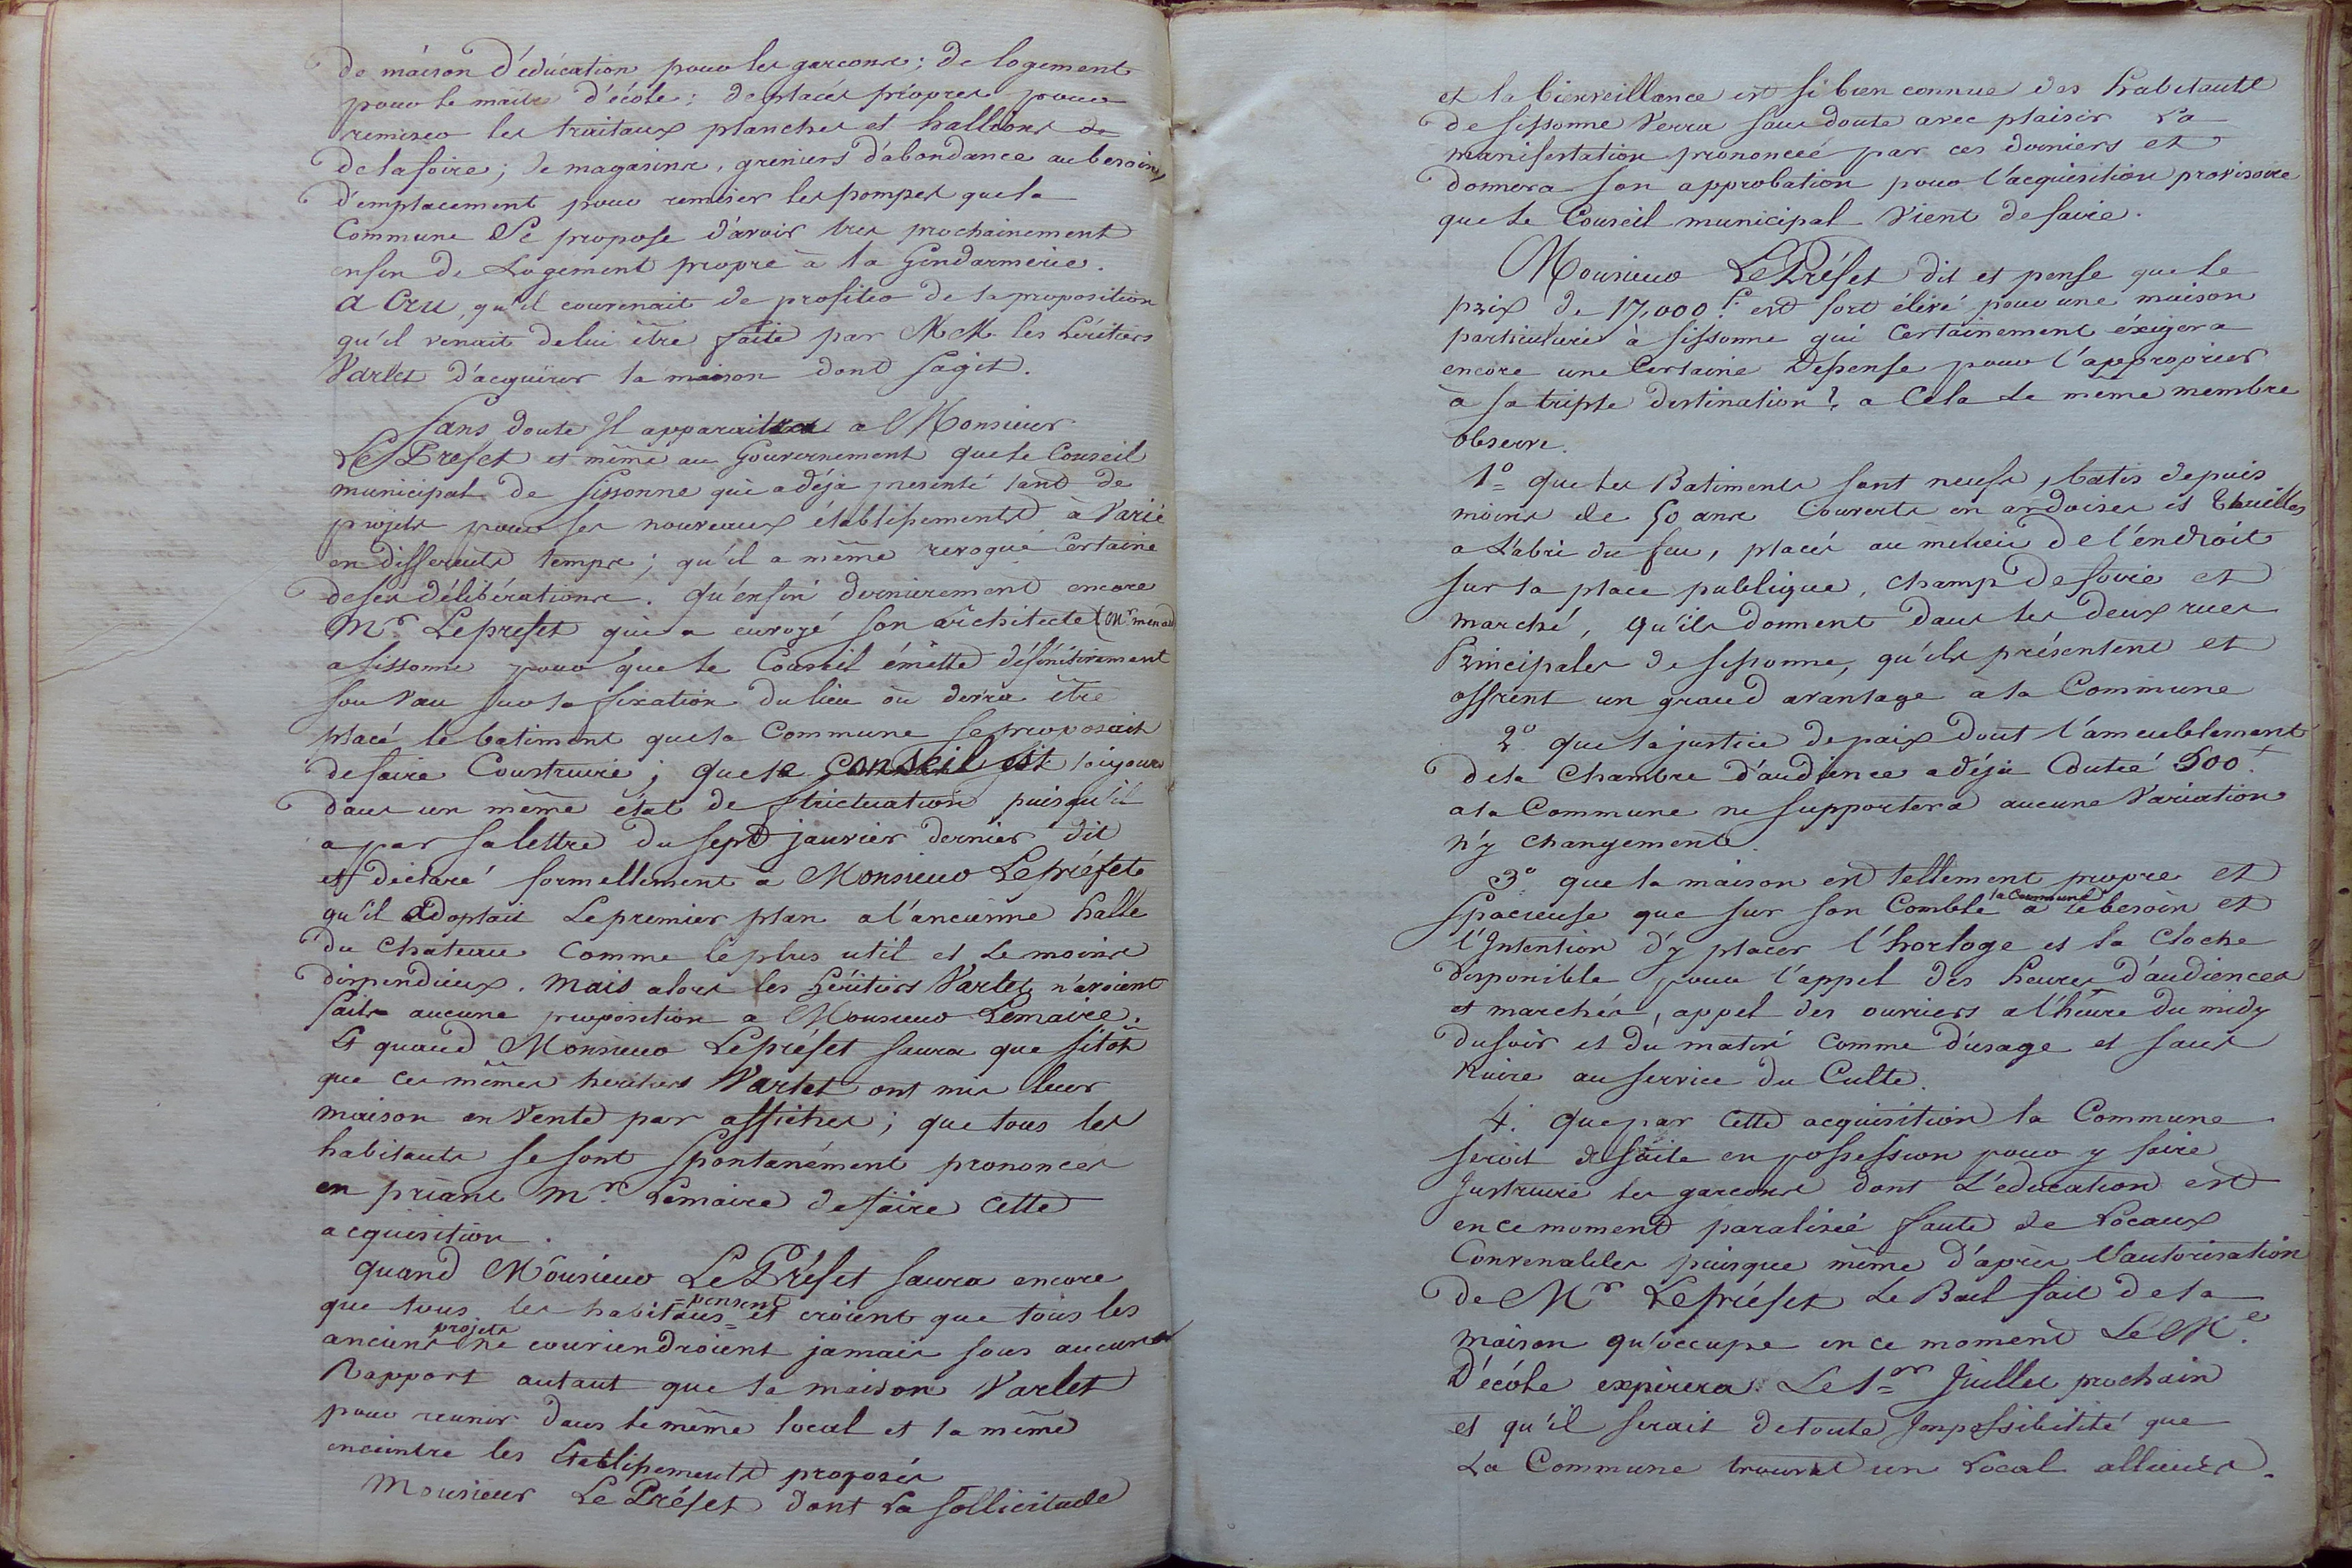 de maison d'éducation pour les garcons; de logement
pour le maitre d'école; de places propres pour
remiser les traitaux planches et hallions de
de la foire; de magasins, greniers d'abondance au besoin,
d'emplacement pour remiser les pompes que la
Commune Se propose d'avoir tres prochainement
enfin de Logement propre à la Gendarmerie.
a Cru, qu'il convenait de profiter de la proposition
qu'il venait de lui être faite par M M. les héritiers
Varlet d'acquérir la maison dont sagit.
Sans doute Il apparaitra a Monsieur
Le Prefet et même au Gouvernement que le Conseil
municipal de Sissonne qui a déja presenté tant de
projets pour ses nouveaux établissements à Varié
en differents temps; qu'il a même revoqué Certaine
de ses délibérations. qu'enfin dernierement encore
Mr. Le prefet qui a envoyé son architecte (Mr
a Sissonne pour que le Conseil émette définitivement
son vœu sur la fixation du lieu où devra être
placé le batiment que la Commune se proposait
de faire Construire; que le Conseil est toujours
dans un même état de fluctuation puisqu'il
a par sa lettre du sept janvier dernier dit
et déclaré formellement à Monsieur Le préfet
qu'il adoptait Le premier plan a l'ancienne halle
du Chateau Comme le plus util et Le moins
dispendieux. Mais alors les héritiers Varlet n'avoient
faits aucune proposition a Monsieur Lemaire.
Et quand Monsieur Le préfet saura que sitôt
que ces mêmes heritiers Varlet ont mis leur
maison en vente par affiches; que tous les
habitants se sont spontanément prononcés
en priant Mr. Lemaire de faire Cette
acquisition.
quand Monsieur Le Préfet saura encore
que tous les habitans = pensent = et croient que tous les
anciens projets ne conviendroient jamais sous aucun
Rapport autant que la maison Varlet
pour reunir dans le même local et la même
enceintre les Etablissements proposés
Monsieur Le Préfet dont La sollicitude
et la bienveillance est si bien connue des habitants
de Sissonne Verra sans doute avec plaisir La
manifestation prononcée par ces derniers et
donnera son approbation pour l'acquisition provisoire
que le Conseil municipal Vient de faire.
Monsieur Le Préfet dit et pense que le
prix de 17,000 f. est fort élevé pour une maison
particuliere à Sissonne qui Certainement éxigera
encore une Certaine Depense pour l'approprier
à sa triple destination? a Cela Le même membre
observe.
1º que les Batiments sont neufs, batis depuis
moins de 50 ans Couverts en ardoises et thuilles
a L'abri du feu, placés au milieu de l'endroit
sur la place publique, champ de foire et
marché, qu'ils donnent dans les deux rues
Principales de Sissonne, qu'ils présentent et
offrent un grand avantage à la Commune
2º que la justice de paix dont l'ameublement
de la Chambre d'audience a déja Coutée 500 f
a la Commune ne supportera aucune Variation
n'y changements.
3º que la maison est tellement propre et
spacieuse que sur son Comble la Commune a le besoin et
l'Intention d'y placer l'horloge et la Cloche
disponible pour l'appel des heures d'audiences
et marchés, appel des ouvriers a l'heure du midy
du soir et du matin Comme d'usage et sans
Nuire au service du Culte.
4. Que par Cette acquisition la Commune
seroit de suite en possession pour y faire
Instruire les garcons dont L'education est
en ce moment paralisée faute de Locaux
Convenables puisque même d'après l'autorisation
de Mr Le Préfet Le Bail fait de la
maison qu'occupe en ce moment Le Me.
D'école expirera Le 1er Juillet prochain
et qu'il serait de toute Impossibilité que
La Commune trouvat un Local allieurs.